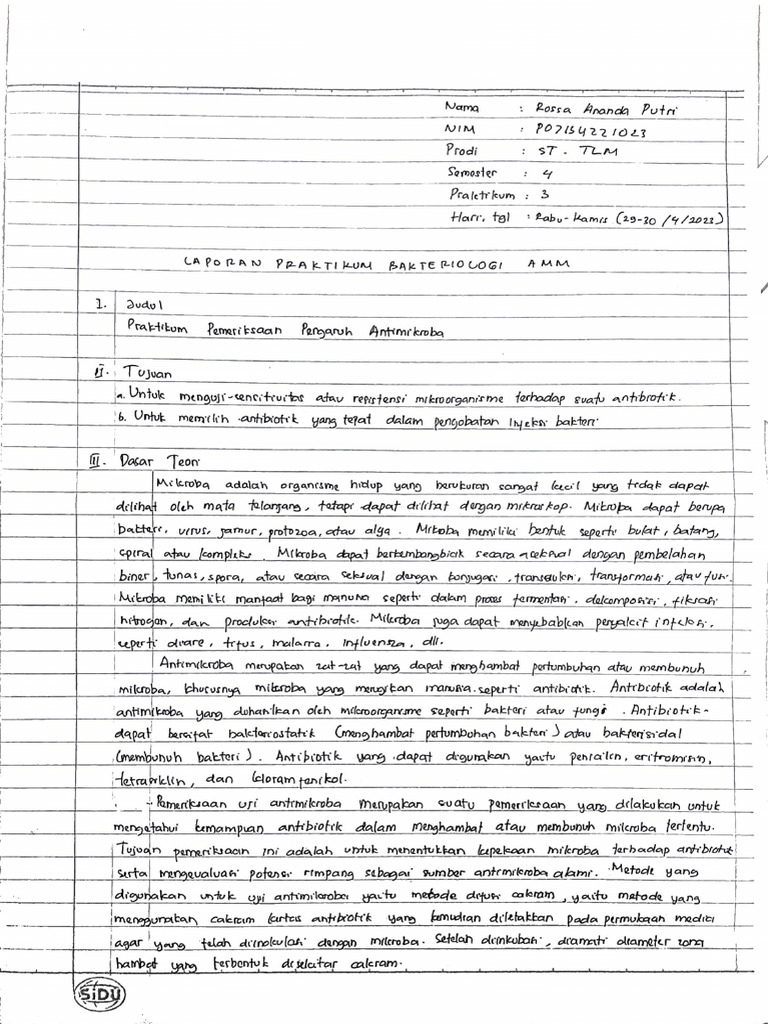 Nama : Rossa Ananda Putri
NIM : P07134221023
Prodi : ST. TLM
Semester : 4
Praktikum : 3
Hari, tgl : Rabu-Kamis (29-30 /4/2023)
LAPORAN PRAKTIKUM BAKTERIOLOGI AMM
I. Judul
Praktikum Pemeriksaan Pengaruh Antimikroba
II. Tujuan
a. Untuk menguji sensitivitas atau resistensi mikroorganisme terhadap suatu antibiotik.
b. Untuk memilih antibiotik yang tepat dalam pengobatan infeksi bakteri
III. Dasar Teori
Mikroba adalah organisme hidup yang berukuran sangat kecil yang tidak dapat
dilihat oleh mata telanjang, tetapi dapat dilihat dengan mikroskop. Mikroba dapat berupa
bakteri, virus, jamur, protozoa, atau alga. Mikoba memiliki bentuk seperti bulat, batang,
spiral atau kompleks. Mikroba dapat berkembangbiak secara aseksual dengan pembelahan
biner, tunas, spora, atau secara seksual dengan konjugasi, transduksi, transformasi, atau fusi.
Mikroba memiliki manfaat bagi manusia seperti dalam proses fermentasi, dekomposisi, fiksasi
nitrogen, dan produksi antibiotik. Mikroba juga dapat menyebabkan penyakit infeksi,
seperti diare, tifus, malaria, influenza, dll.
Antimikroba merupakan zat-zat yang dapat menghambat pertumbuhan atau membunuh
mikroba, khususnya mikroba yang merugikan manusia seperti antibiotik. Antibiotik adalah
antimikroba yang dihasilkan oleh mikroorganisme seperti bakteri atau fungi. Antibiotik
dapat bersifat bakteriostatik (menghambat pertumbuhan bakteri) atau bakterisidal
(membunuh bakteri). Antibiotik yang dapat digunakan yaitu penisilin, eritromisin,
tetrasiklin, dan kloramfenikol.
Pemeriksaan uji antimikroba merupakan suatu pemeriksaan yang dilakukan untuk
mengetahui kemampuan antibiotik dalam menghambat atau membunuh mikroba tertentu.
Tujuan pemeriksaan ini adalah untuk menentukkan kepekaan mikroba terhadap antibiotik
serta mengevaluasi potensi rimpang sebagai sumber antimikroba alami. Metode yang
digunakan untuk uji antimikroba yaitu metode difusi cakram, yaitu metode yang
menggunakan cakram kertas antibiotik yang kemudian diletakkan pada permukaan media
agar yang telah diinokulasi dengan mikroba. Setelah diinkubasi, diamati diameter zona
hambat yang terbentuk disekitar cakram.
SiDU